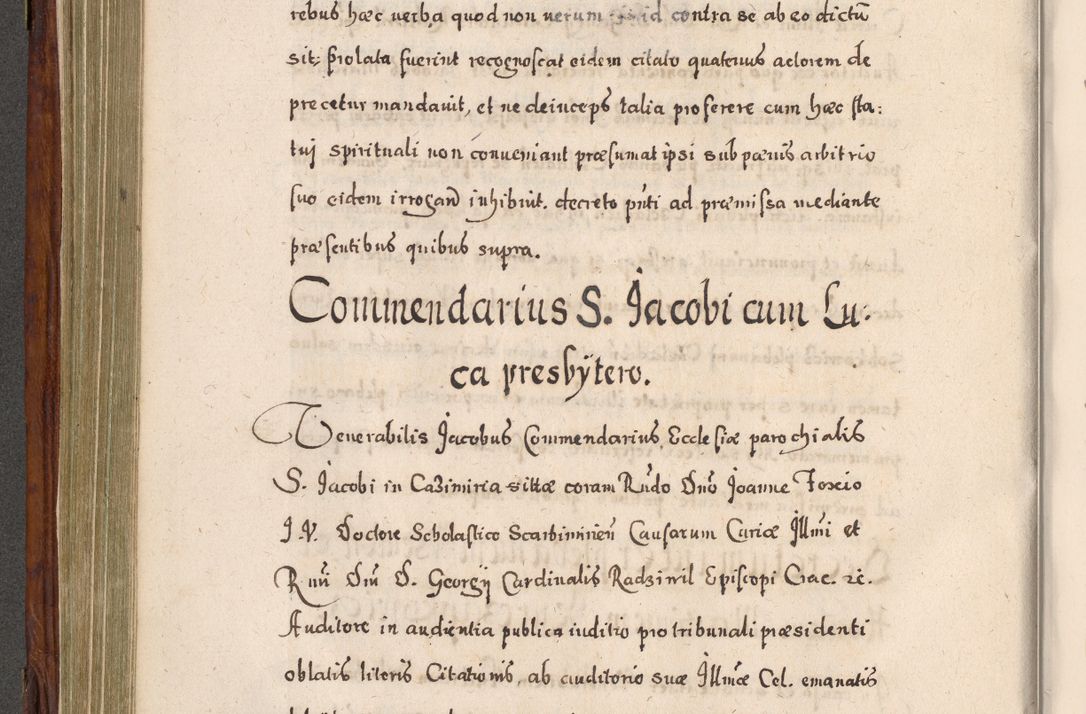 rebus hæc verba quod non verum contra se ab eo dictũ
sit: prolata fuerint recognoscat eidem citato quatenus actorem de
precetur mandavit, et ne deinceps talia proferere cum hæc sta:
tuj spirituali non conveniant præsumat ipsi sub pœnis arbitrio
suo eidem irrogañ inhibivit. decreto pñti ad præmissa mediante
præsentibus quibus supra.
Commendarius S. Jacobi cum Lu:
ca presbÿtero.
Venerabilis Jacobus Commendarius Ecclesiæ parochialis
S. Jacobi in Cazimiria sittæ coram Rñdo Dño Joanne Foxio
J. V. Doctore Scholastico Scarbimirieñ Causarum Curiæ Jllmi et
Rmi Dñi D. Georgÿ Cardinalis Radziwil Episcopi Crac. rc.
Auditore in audientia publica iuditio pro tribunali præsidenti
oblatis literis Citationis, ab auditorio suæ Jllmæ Cel. emanatis